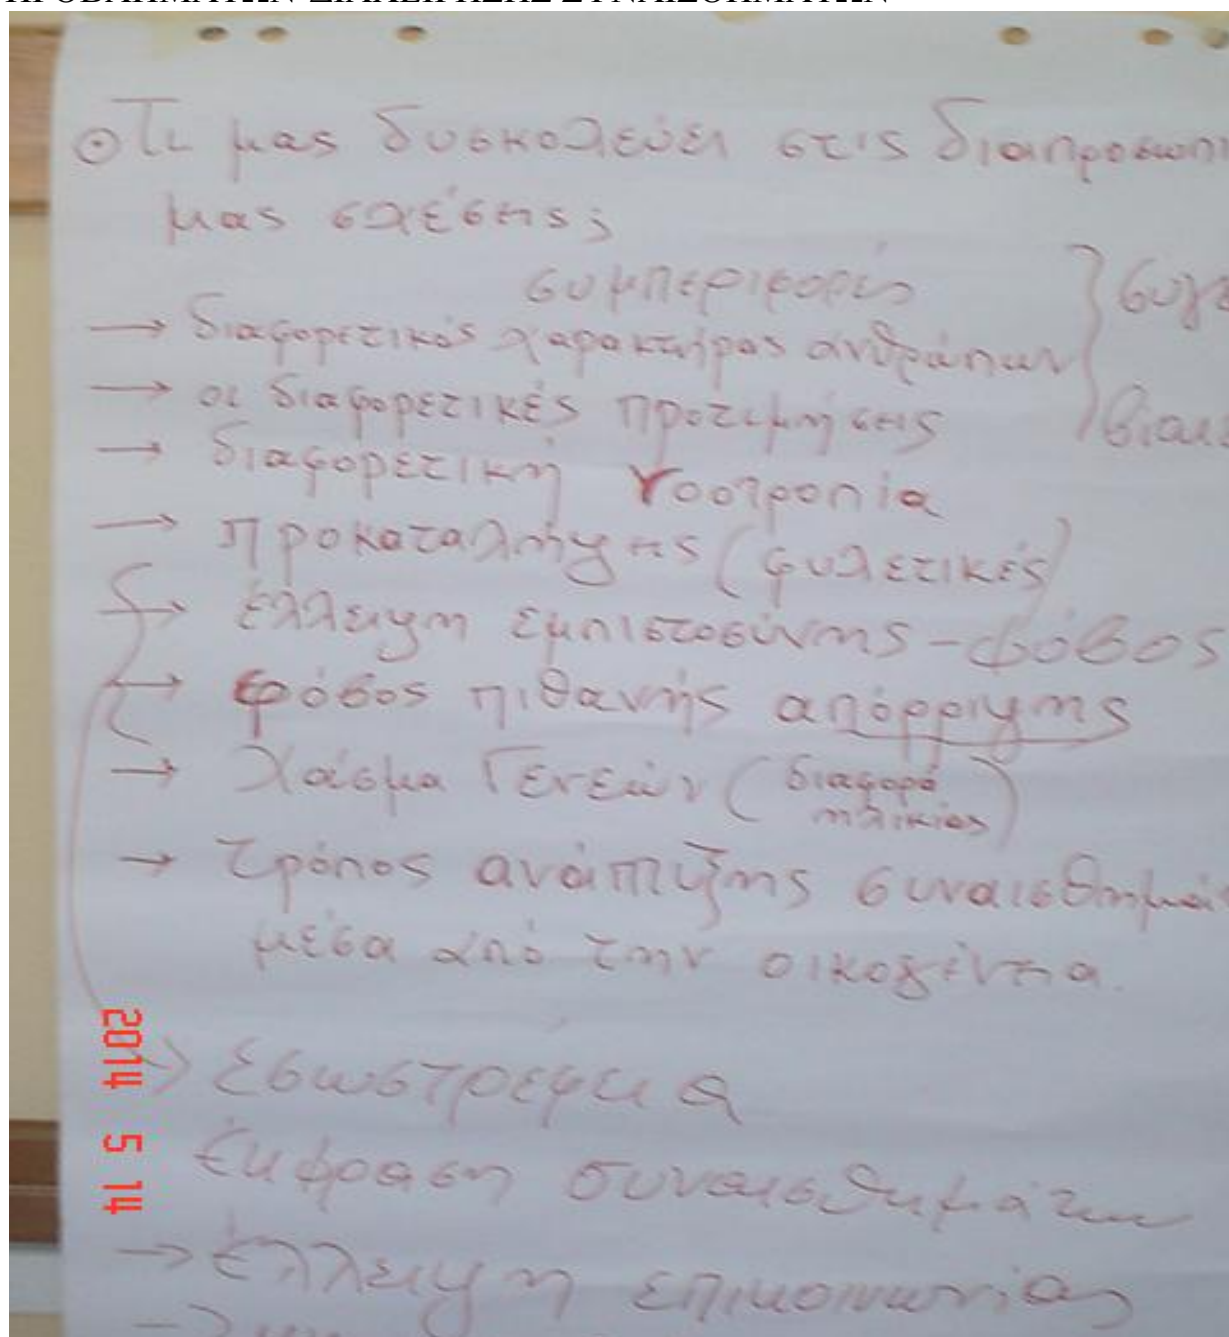 ΠΡΟΒΛΗΜΑΤΩΝ ΔΙΑΧΕΙΡΗΣΗΣ ΣΥΝΑΙΣΘΗΜΑΤΩΝ
Τι μας δυσκολεύει στις διαπροσωπι
μας σχέσεις;
συμπεριφορές
→ διαφορετικός χαρακτήρας ανθρώπων
→ οι διαφορετικές προτιμήσεις
→ διαφορετική νοοτροπία
→ προκαταλήψεις (φυλετικές)
→ έλλειψη εμπιστοσύνης - φόβος
→ φόβος πιθανής απόρριψης
→ Χάσμα Γενεών (διαφορά
ηλικίας)
→ τρόπος ανάπτυξης συναισθημά
μέσα από την οικογένεια.
→ εσωστρέφεια
έκφραση συναισθημάτων
→ έλλειψη επικοινωνίας
2014 5 14